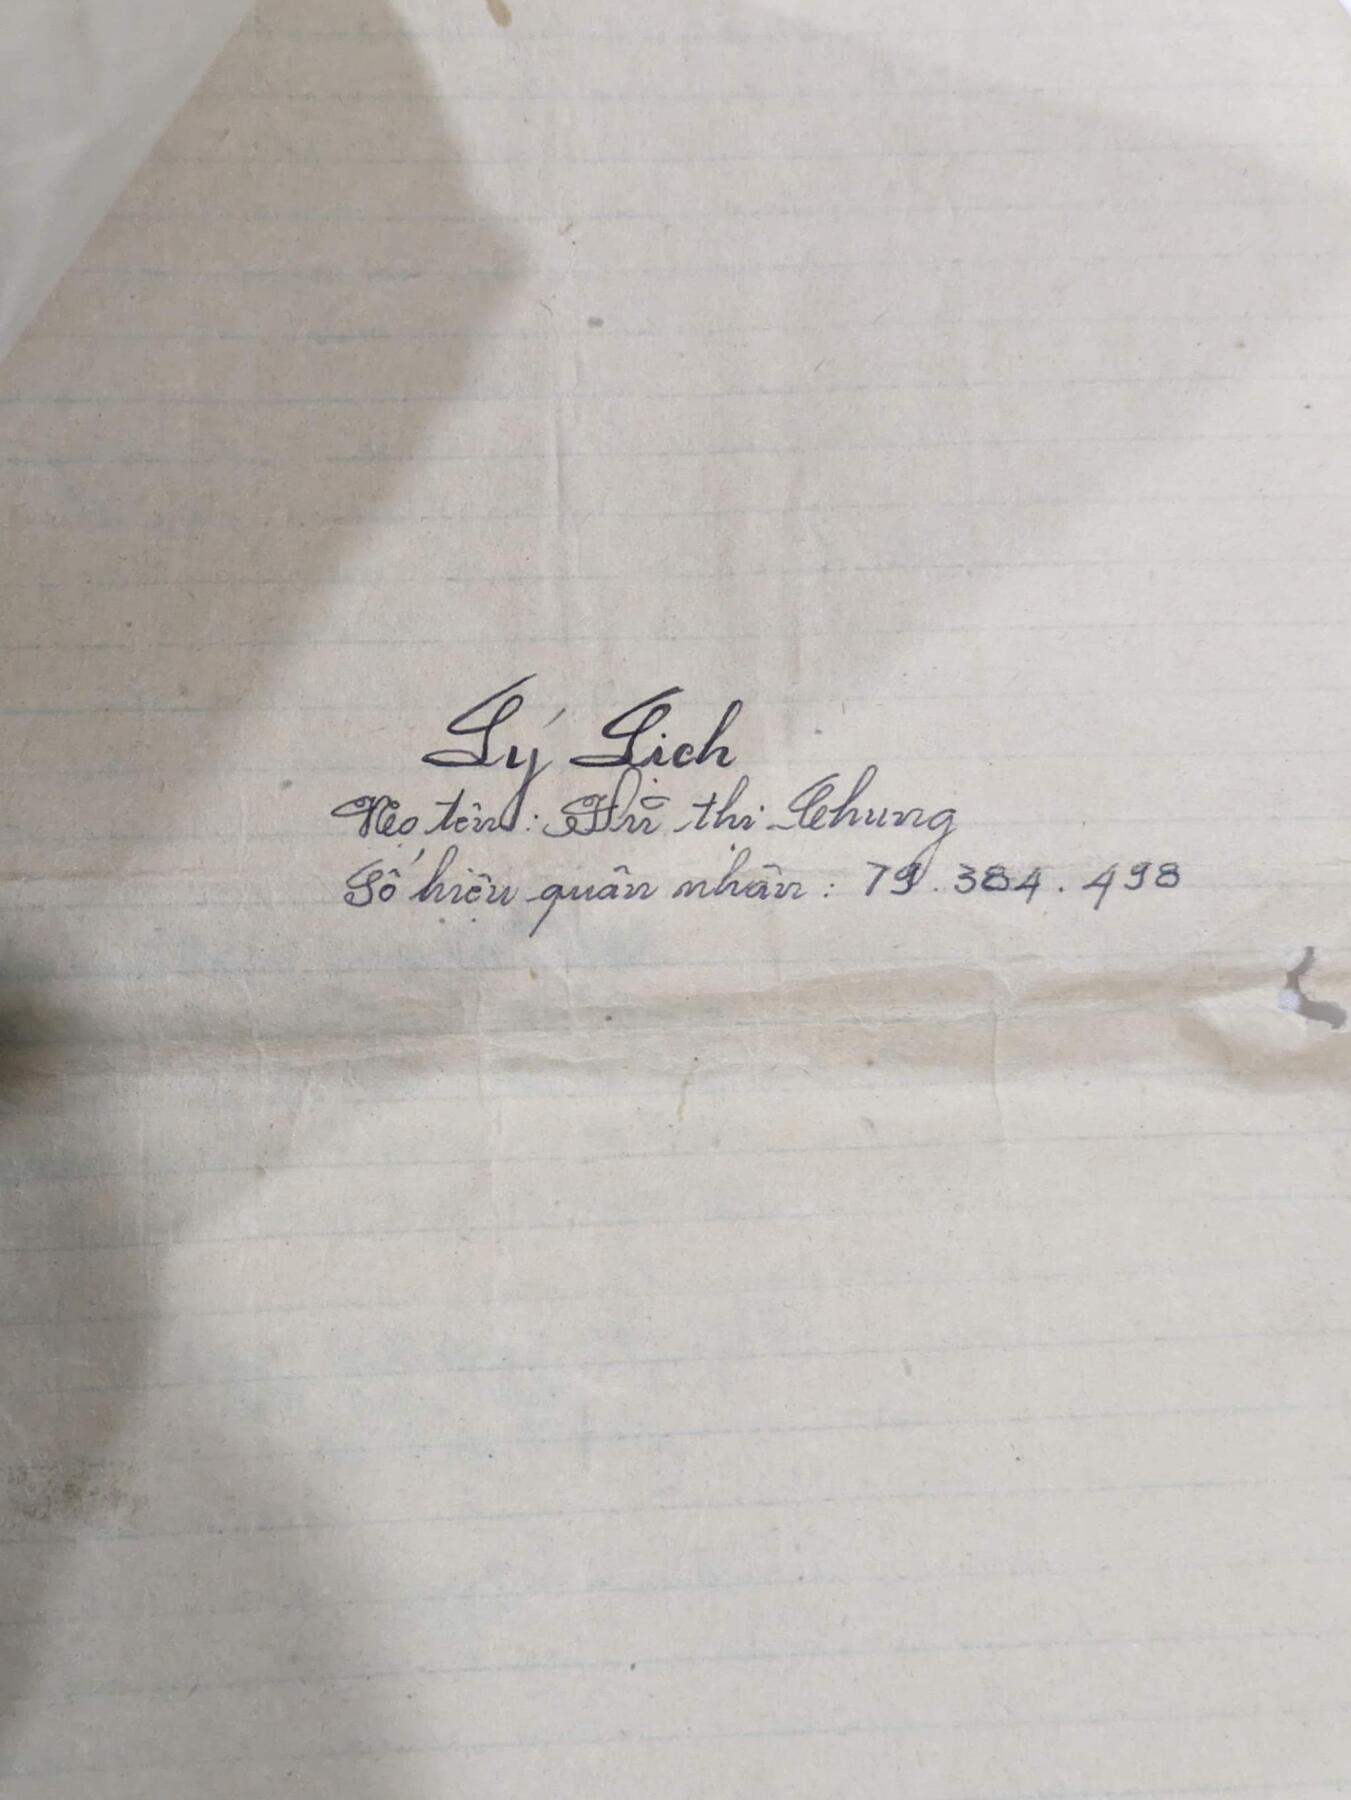 Lý Lịch
Họ tên: thị Chung
Số hiệu quân nhân: 79.384.498